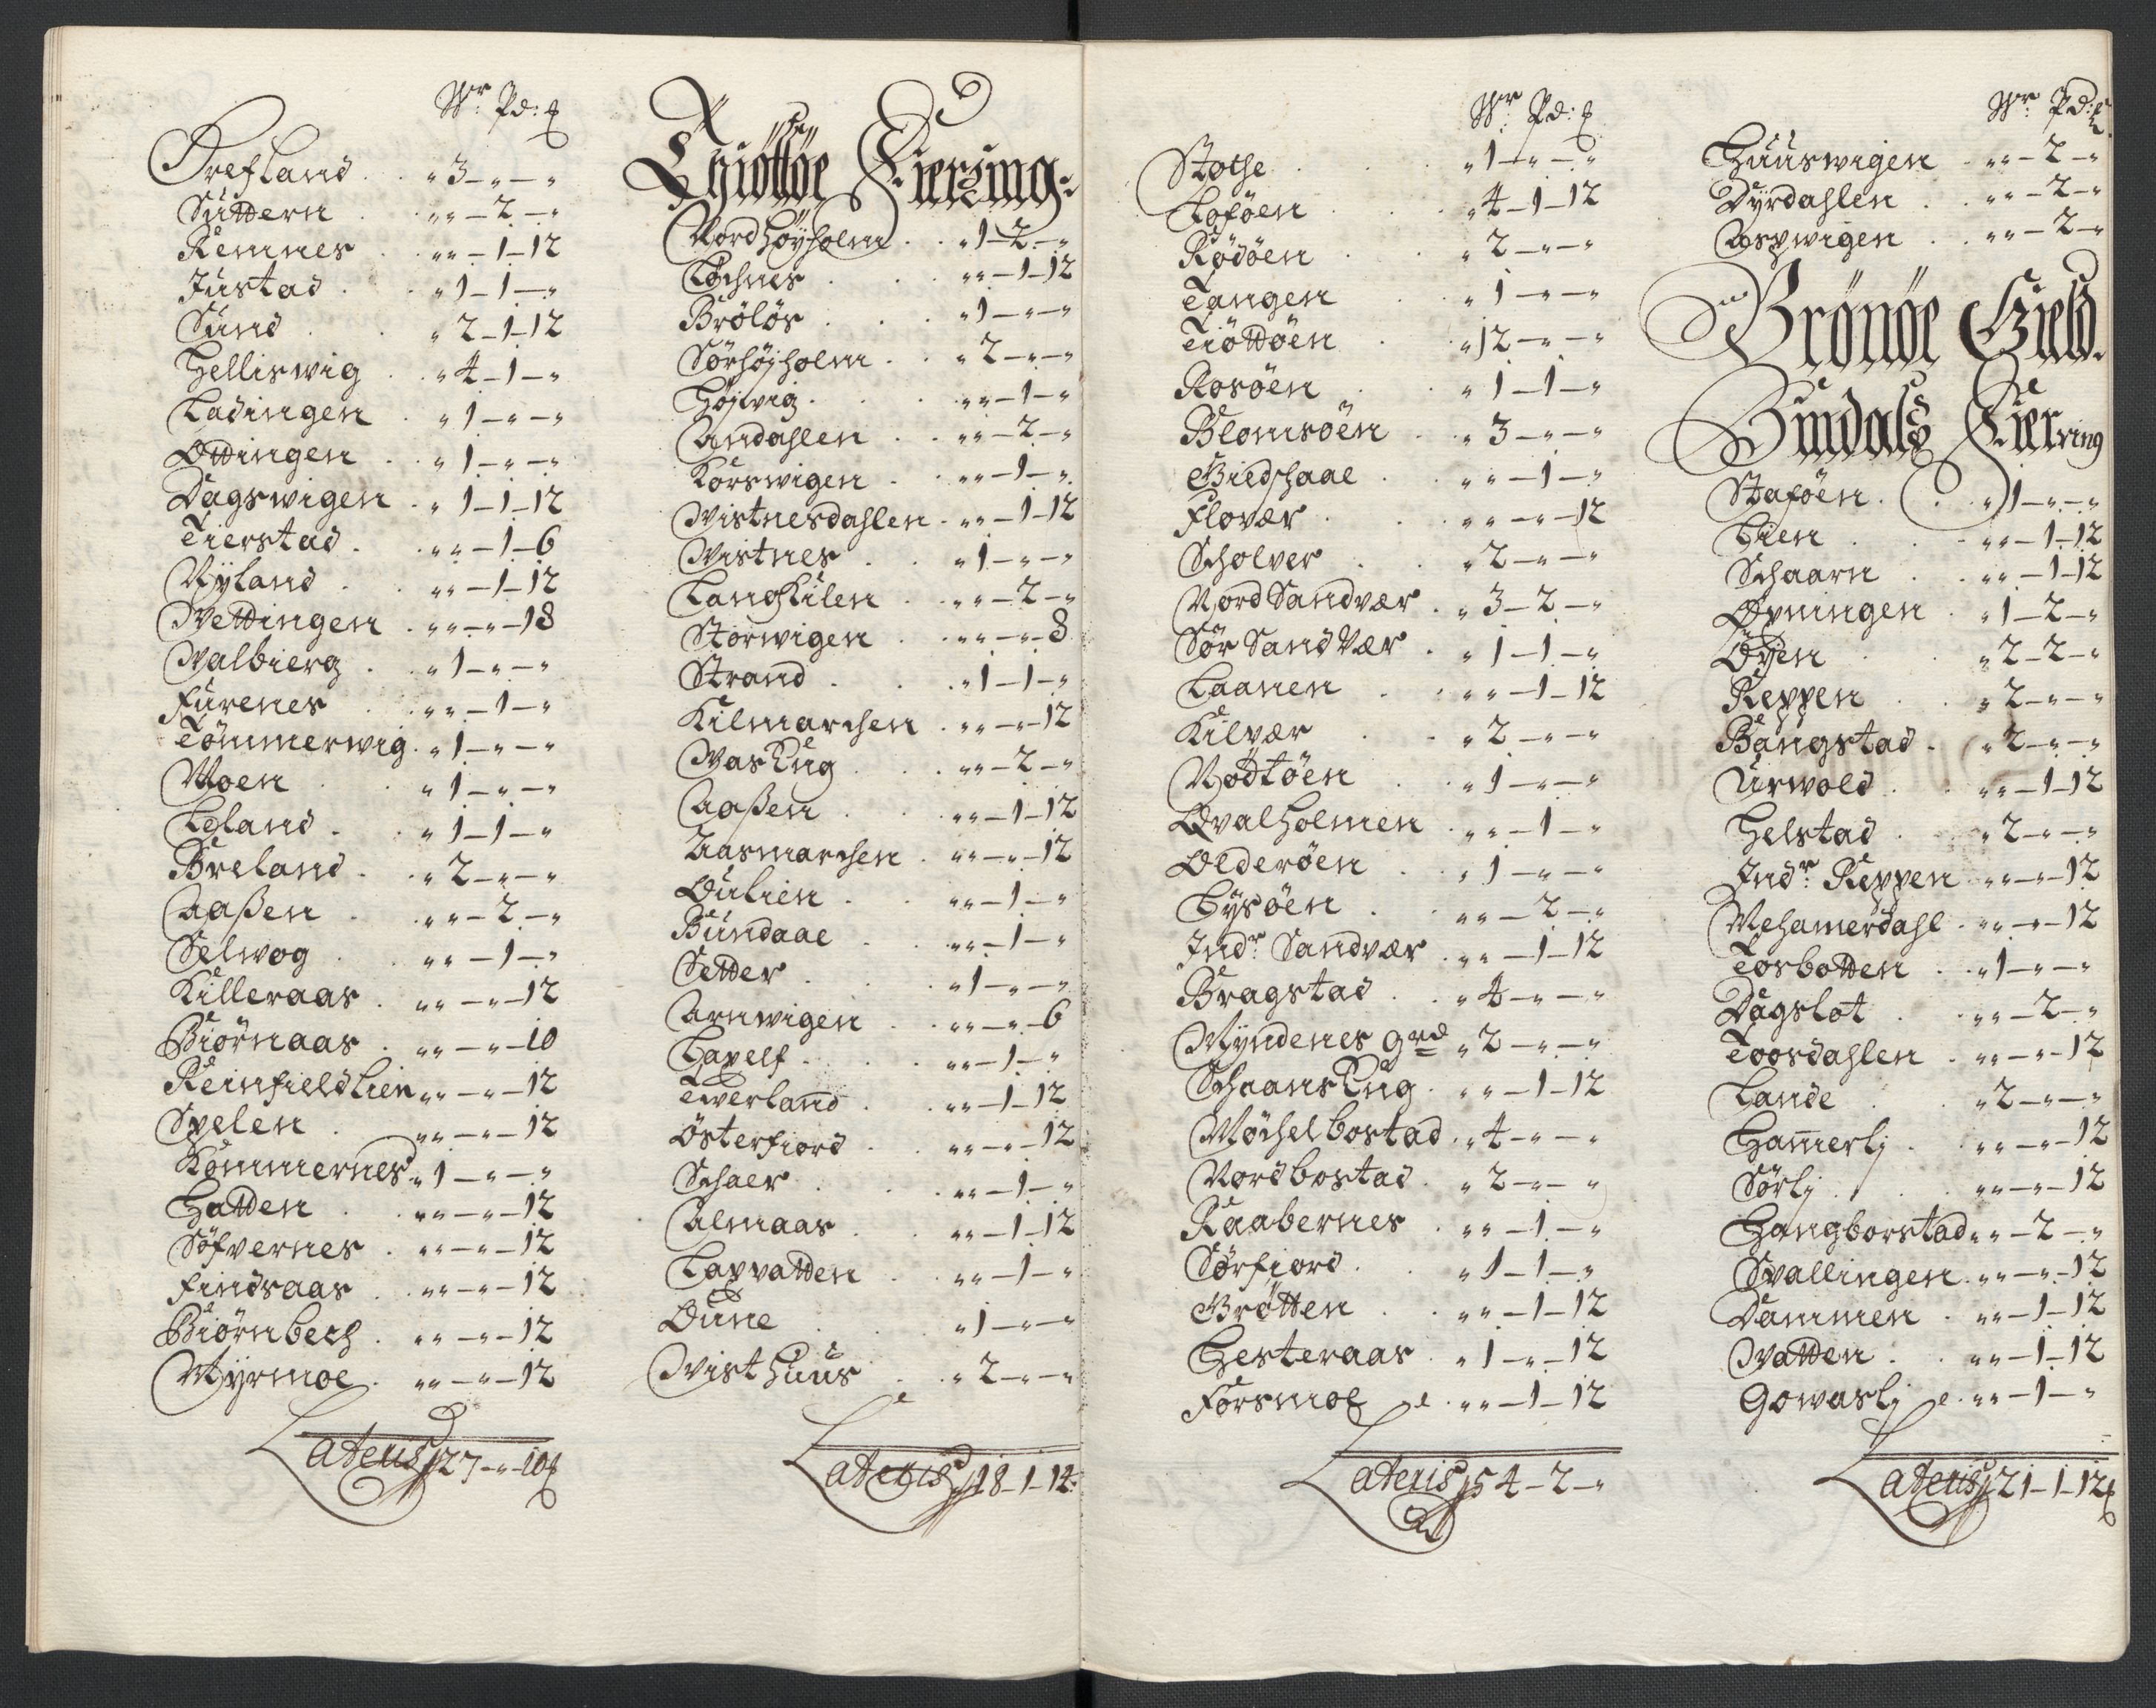 Wr Pd: ℔
Forsland . . " 3 – " – "
Suttern . . " " – 2 – "
Remnes . . " " – 1 – 12
Justad . . " 1 – 1 – "
Sund . . " 2 – 1 – 12
Helliswig . . " 4 – 1 – "
Ladingen . . " 1 – " – "
Ottingen . . " 1 – " – "
Dagswigen . " 1 – 1 – 12
Tierstad . . " " – 1 – 6
Nÿland . . " " – 1 – 12
Wettingen . " " – " – 18
Walbierg . . " 1 – " – "
Furenes . . " " – 1 – "
Tömmerwig . " 1 – " – "
Moen . . " 1 – " – "
Leland . . " 1 – 1 – "
Breland . . " 2 – " – "
Aaßen . . " " – 2 – "
Selwog . . " " – 1 – "
Killeraas . " " – " – 12
Biörnaas . " " – " – 10
Reinfieldlien " " – " – 12
Spelen . " " – " – 12
Kommernes . " 1 – " – "
Hatten . . " " – " – 12
Söfvernes . " " – " – 12
Findsaas . " " – " – 12
Biörnbech . " " – " – 12
Myrmoe . " " – " – 12
Lateris 27 – " – 10 ℔
Thiöttöe Fierding:
Nordhöÿholm . . " 1 – 2 – "
Lochnes . . " " – 1 – 12
Brölös . . " 1 – " – "
Sörhöjholm . . " 2 – " – "
Höjvig . . " " – 1 – "
Andahlen . . " " – 2 – "
Korswigen . . " " – 1 – "
Wistnesdahlen . " " – 1 – 12
Wistnes . . " 1 – " – "
Langkilen . . " " – 2 – "
Storwigen . . " " – " – 8
Strand . . " 1 – 1 – "
Kilmarchen . " " – " – 12
WasEng . . " " – 2 – "
Aaßen . . " " – 1 – 12
Aasmarchen . " " – " – 12
Dulien . . " " – 1 – "
Bundaae . . " " – 1 – "
Setter . . " 1 – " – "
Arnwigen . . " " – " – 6
Hapelf . . " " – 1 – "
Twerland . . " " – 1 – 12
Österfiord . . " " – " – 12
Schaer . . " " – 1 – "
Almaas . . " " – 1 – 12
Lapvatten . . " " – 1 – "
Dune . . " 1 – " – "
Wisthuus . . " 2 – " – "
Lateris 18 – 1 – 14:
Wr Pd: ℔
Stothe . . " 1 – " – "
Loföen . . " 4 – 1 – 12
Rödöen . . " 2 – " – "
Tangen . . " 1 – " – "
Tiöttöen . . " 12 – " – "
Rosöen . . " 1 – 1 – "
Blomsöen . . " 3 – " – "
Giedschaae . . " " – 1 – "
Flovær . . " " – " – 12
Scholver . . " 2 – " – "
Nord Sandvær . " 3 – 2 – "
Sör Sandvær . " 1 – 1 – "
Laanen . . " " – 1 – 12
Kilvær . . " 2 – " – "
Rödtöen . . " 1 – " – "
Qvalholmen . " " – 1 – "
Olderöen . . " 1 – " – "
Lysöen . . " " – 2 – "
Indr Sandvær . " " – 1 – 12
Bragstad . . " 4 – " – "
Myndenes grd " 2 – " – "
SchaansEng . " " – 1 – 12
Möchelbostad . " 4 – " – "
Nordbostad . " 2 – " – "
Raabernes . . " " – 1 – "
Sörfiord . . " 1 – 1 – "
Brötten . . " " – 1 – 12
Hesteraas . . " 1 – " – 12
Forsmoe . . " " – 1 – 12
Lateris 54 – 2 – "
Wr Pd: ℔
Huuswigen . . " " – 2 – "
Dÿrdahlen . . " " – 2 – "
Aspwigen . . " " – 2 – "
Brönöe Gield.
Bindals Fierding
Staföen . . " 1 – " – "
Lien . . " " – 1 – 12
Schaarn . . " " – 1 – 12
Øvningen . . " 1 – 2 – "
Øyen . . " 2 – 2 – "
Reppen . . " 2 – " – "
Bangstad . . " 2 – " – "
Urwold . . " " – 1 – 12
Helstad . . " 2 – " – "
Indr Reppen . " " – " – 12
Mehamerdahl . " " – " – 12
Tosbotten . . " 1 – " – "
Dagslot . . " " – 2 – "
Toosdahlen . " " – " – 12
Lande . . " 2 – " – "
Hamerlj . . " " – " – 12
Sörlj . . " " – " – 12
Hangborstad . " " – 2 – "
Svallingen . " " – " – 12
Dammen . . " " – 1 – 12
Watten . . " " – 1 – 12
Gowaslj . . " " – 1 – "
Lateris 21 – 1 – 12 ℔